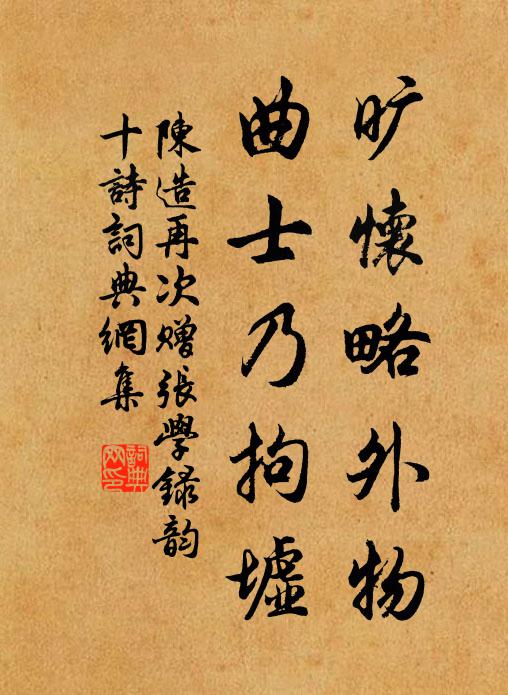 旷懷略外物
曲士乃拘墟
陳造再次贈張學録韵
十詩詞典網集
詞典網印